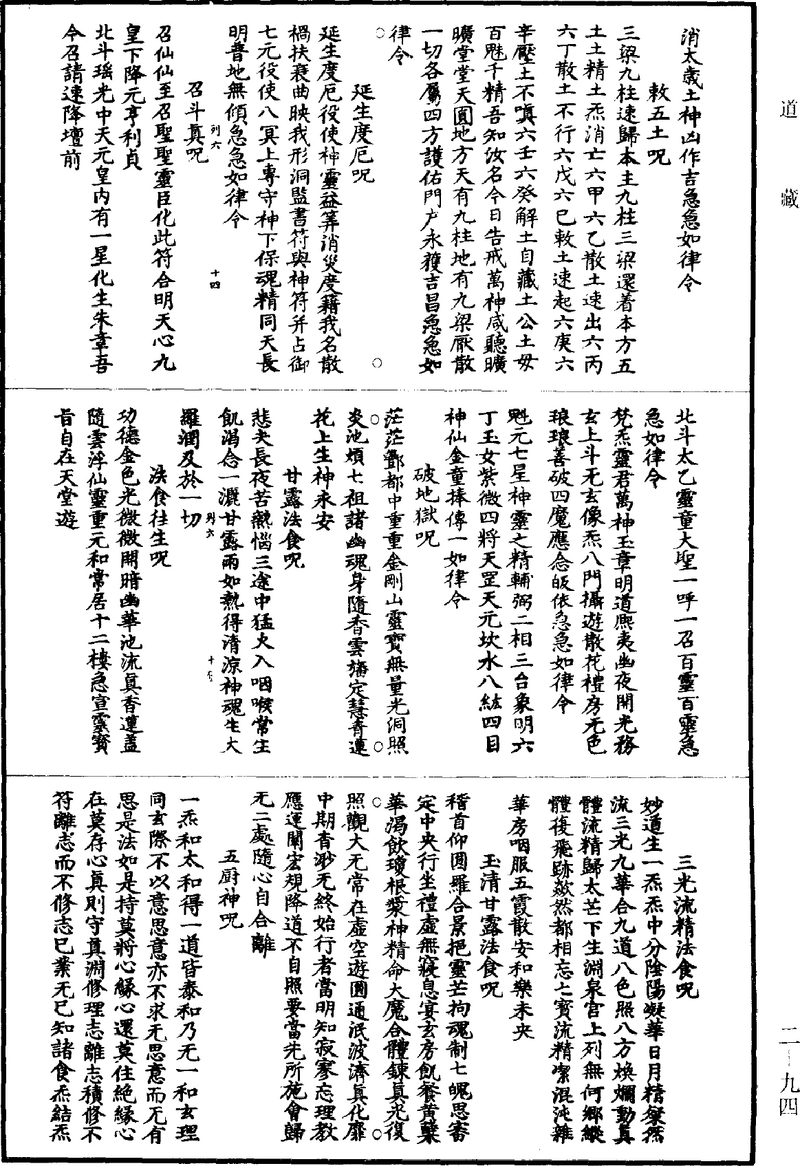 道藏
二一九四
消太歲土神凶作吉急急如律令
敕五土呪
三梁九柱速歸本主九柱三梁還着本方五
土土精土炁消亡六甲六乙散土速出六丙
六丁散土不行六戊六己敕土速起六庚六
辛壓土不嗔六壬六癸解土自藏土公土母
百魁千精吾知汝名今日告戒萬神咸聽曠
曠堂堂天圓地方天有九柱地有九梁厭散
一切各屬四方護佑門户永獲吉昌急急如
律令
延生度厄呪
延生度厄役使神靈益筭消災度籍我名散
禍扶衰曲映我形洞監書符與神符并占御
七元役使八冥上專守神下保魂精同天長
明普地無傾急急如律令
召斗真呪
列六 十四
召仙仙至召聖聖靈臣化此符合明天心九
皇下降元亨利貞
北斗瑶光中天元皇内有一星化生朱章吾
今召請速降壇前
北斗太乙靈童大聖一呼一召百靈百靈急
急如律令
梵炁靈君萬神玉章明道熈夷幽夜開光務
玄上斗无玄像炁八門攝遊散花禮房无色
琅琅善破四魔應念皈依急急如律令
魁元七星神靈之精輔弼二相三台象明六
丁玉女紫微四將天罡天元坎水八紘四目
神仙金童捧傳一如律令
破地獄呪
茫茫酆都中重重金剛山靈寶無量光洞照
炎池煩七祖諸幽魂身隨香雲旛定慧青蓮
花上生神永安
甘露法食呪
悲夫長夜苦熱惱三途中猛火入咽喉常生
飢渴念一灑甘露雨如熱得清涼神魂生大
羅潤及於一切
列六
法食往生呪
功德金色光微微開暗幽華池流真香蓮蓋
隨雲浮仙靈重元和常居十二樓急宣靈寶
旨自在天堂遊
三光流精法食呪
妙道生一炁炁中分陰陽凝華日月精粲然
流三光九華合九道八色照八方煥爛動真
體流精歸太芒下生淵泉宫上列無何鄉縱
體復飛跡歘然都相忘七寶流精潔混沌雜
華房咽服五霞散安和樂未央
玉清甘露法食呪
稽首仰圓羅合景挹靈芒拘魂制七魄思審
定中央行生禮虚無寢息宴玄房飢餐黄蘗
華渴飲瓊根漿神精命大魔合體鍊真光復
照觀大无常在虚空遊圓通泯波濟真化靡
中期杳渺无終始行者當明知寂寥忘理教
應運闡宏規降道不自照要當先所施會歸
无二處隨心自合離
五厨神呪
一炁和太和得一道皆泰和乃无一和玄理
同玄際不以意思意亦不求无思意而无有
思是法如是持莫將心緣心還莫住絶緣心
在莫存心真則守真淵修理志離志積修不
符離志而不修志已業无已知諸食炁結炁